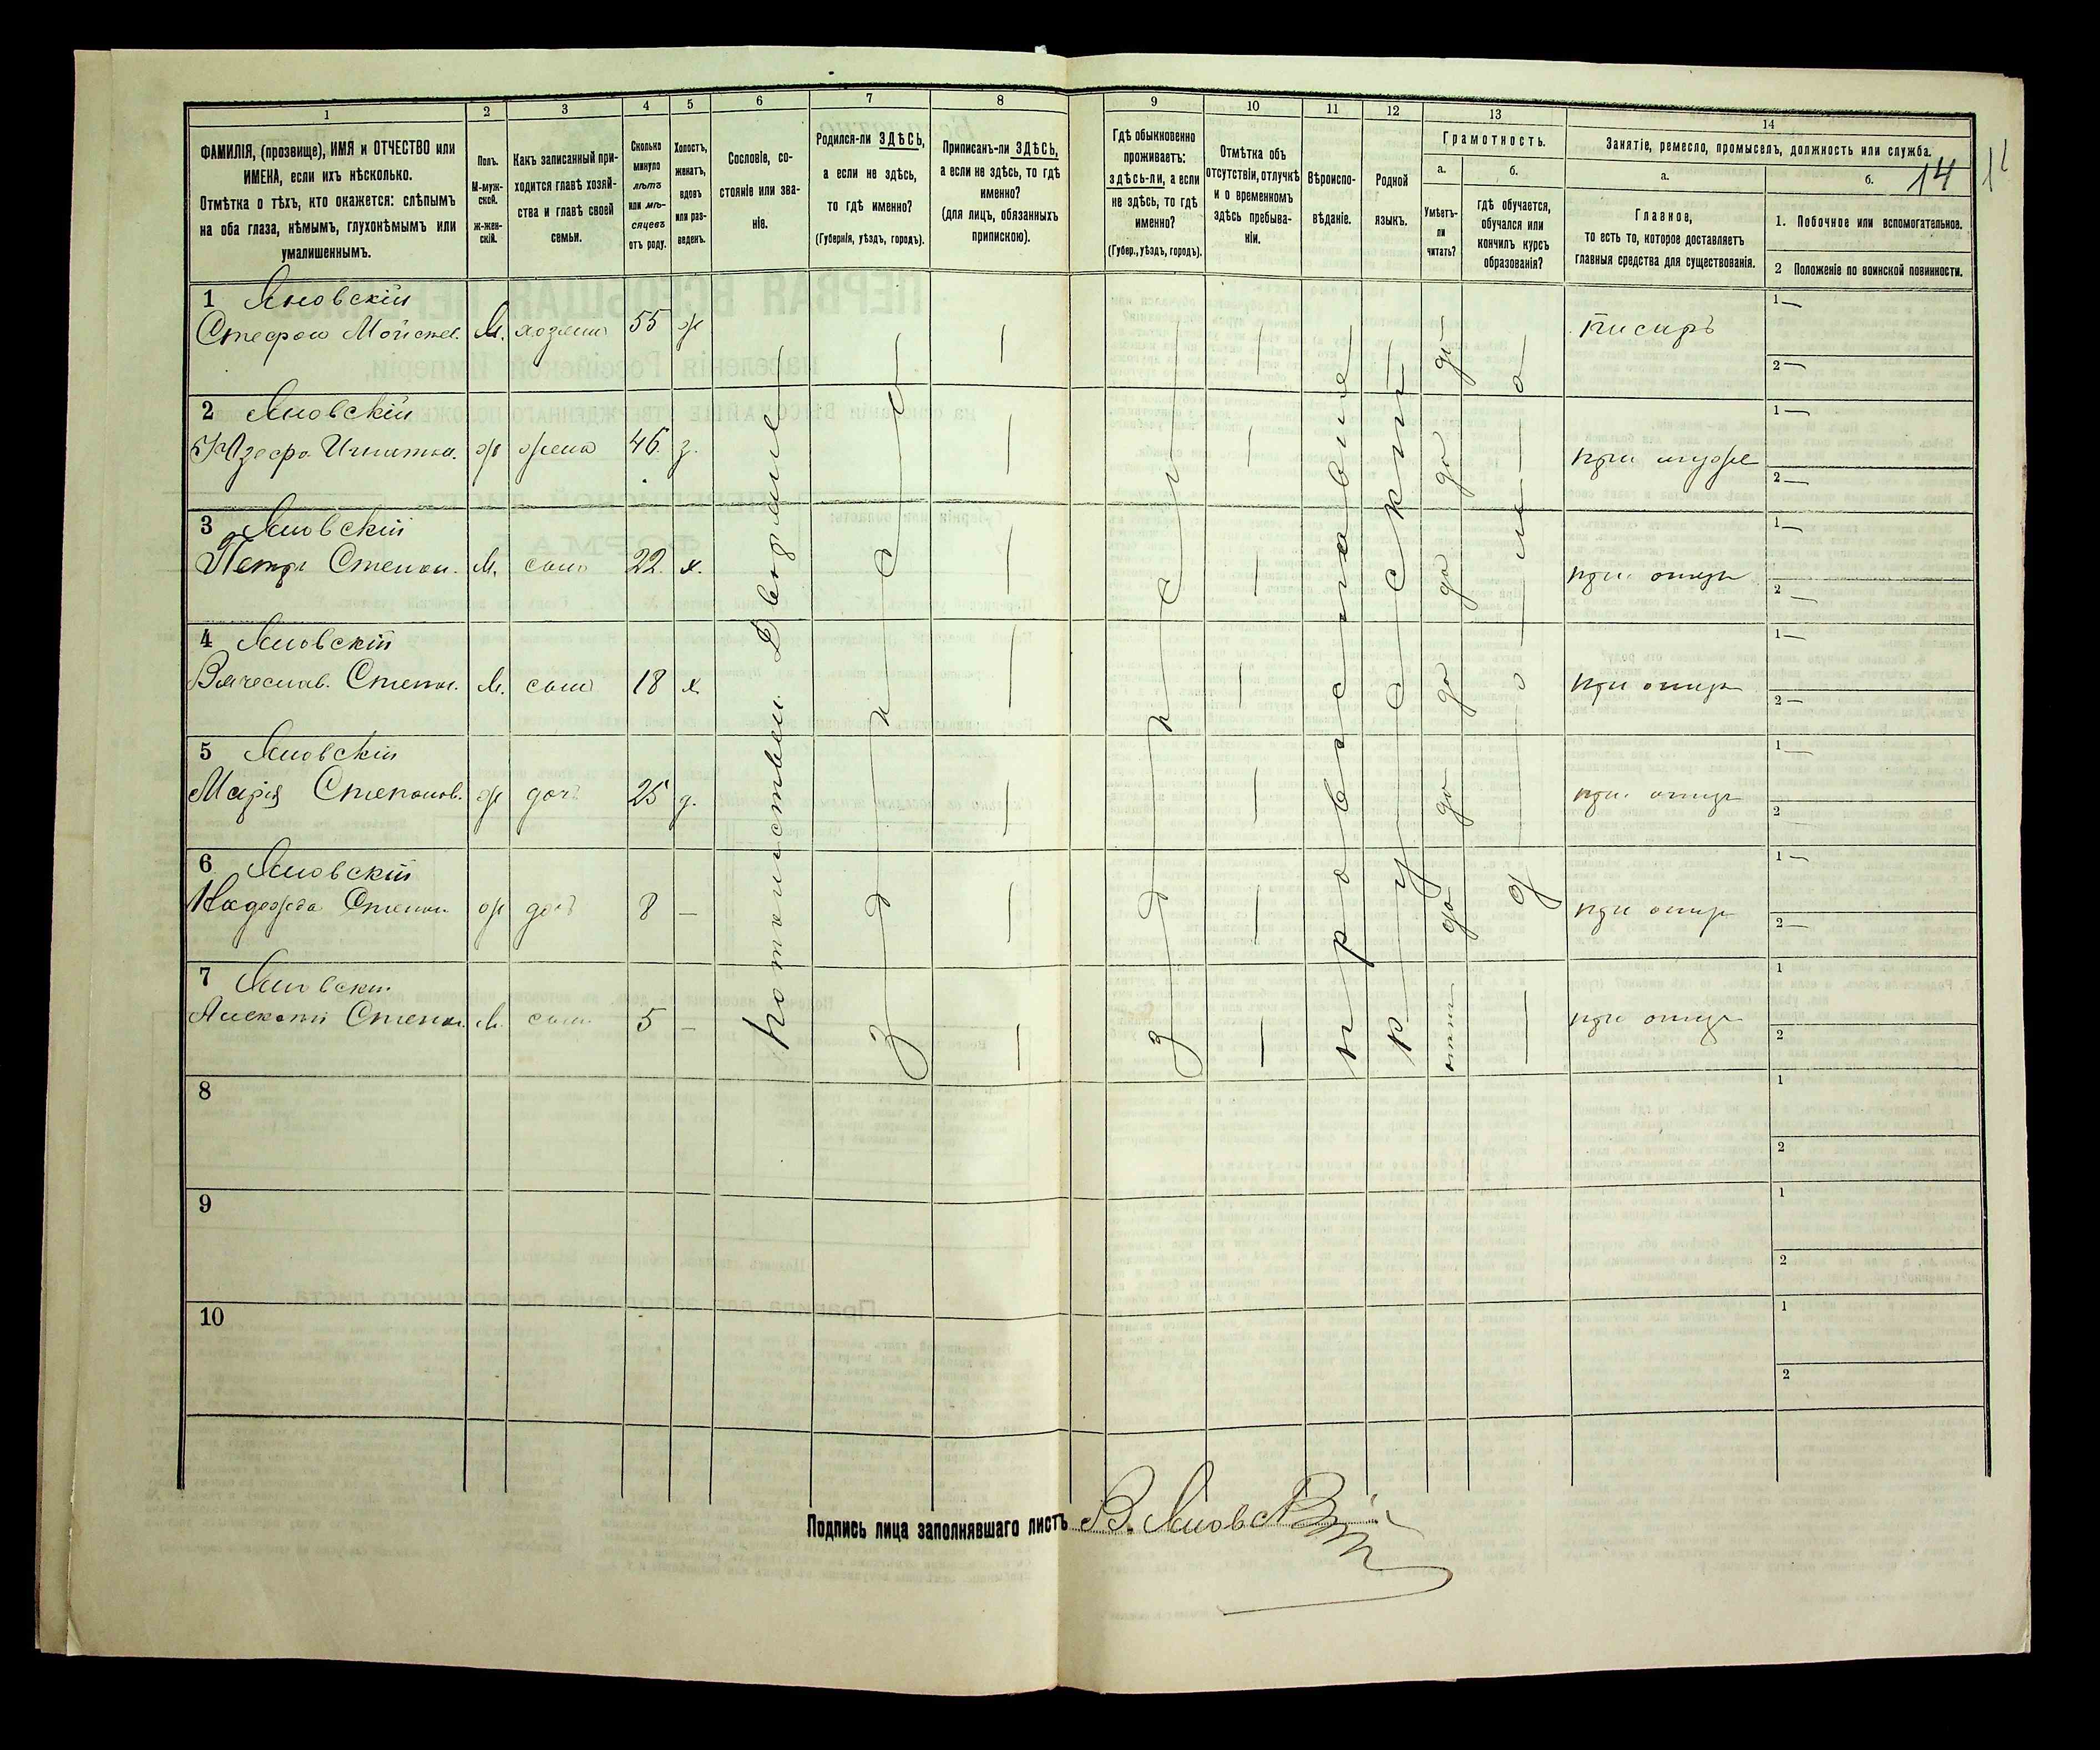 1
2
3
4
5
6
7
8
9
10
11
12
13
14
ФАМИЛІЯ, (прозвище), ИМЯ и ОТЧЕСТВО или
ИМЕНА, если ихъ нѣсколько.
Отмѣтка о тѣхъ, кто окажется: слѣпымъ
на оба глаза, нѣмымъ, глухонѣмымъ или
умалишеннымъ.
Полъ.
М-муж-
ской.
ж-жен-
скій.
Какъ записанный при-
ходится главѣ хозяй-
ства и главѣ своей
семьи.
Сколько
минуло
лѣтъ
или мѣ-
сяцевъ
отъ роду.
Холостъ,
женатъ,
вдовъ
или раз-
веденъ.
Сословіе, со-
стояніе или зва-
ніе.
Родился-ли ЗДѢСЬ,
а если не здѣсь,
то гдѣ именно?
(Губернія, уѣздъ, городъ).
Приписанъ-ли ЗДѢСЬ,
а если не здѣсь, то гдѣ
именно?
(для лицъ, обязанныхъ
припискою).
Гдѣ обыкновенно
проживаетъ:
здѣсь-ли, а если
не здѣсь, то гдѣ
именно?
(Губер., уѣздъ, городъ).
Отмѣтка объ
отсутствіи, отлучкѣ
и о временномъ
здѣсь пребыва-
ніи.
Вѣроиспо-
вѣданіе.
Родной
языкъ.
Грамотность.
а.
Умѣетъ-
ли
читать?
б.
гдѣ обучается,
обучался или
кончилъ курсъ
образованія?
Занятіе, ремесло, промыселъ, должность или служба.
а.
Главное,
то есть то, которое доставляетъ
главныя средства для существованія.
б.
14
1. Побочное или вспомогательное.
2 Положеніе по воинской повинности.
1 Яновскій
Стефан М. хозяин 55 ж да писаръ 1— 2—
2 Яновскій
Юзефа ж жена 46. з. да при муже 1— 2—
3 Яновскій
Петръ Степан. М. сынъ 22. х. да при отцѣ 1— 2—
4 Яновскій
Вячеслав. Степан. М. сынъ 18 х. да при отцѣ 1— 2—
5 Яновскій
Марія Степанов. ж дочь 25 д. да при отцѣ 1— 2—
6 Яновскій
Надежда Степан. ж дочь 8 — да при отцѣ 1— 2—
7 Яновскій
Степан. М. сынъ 5 — при отцѣ 1 2
потомственн. Дворяне
здѣсь
здѣсь
православное
русскій
дома
8 1 2
9 1 2
10 1 2
Подпись лица заполнявшаго листъ В. Яновскій